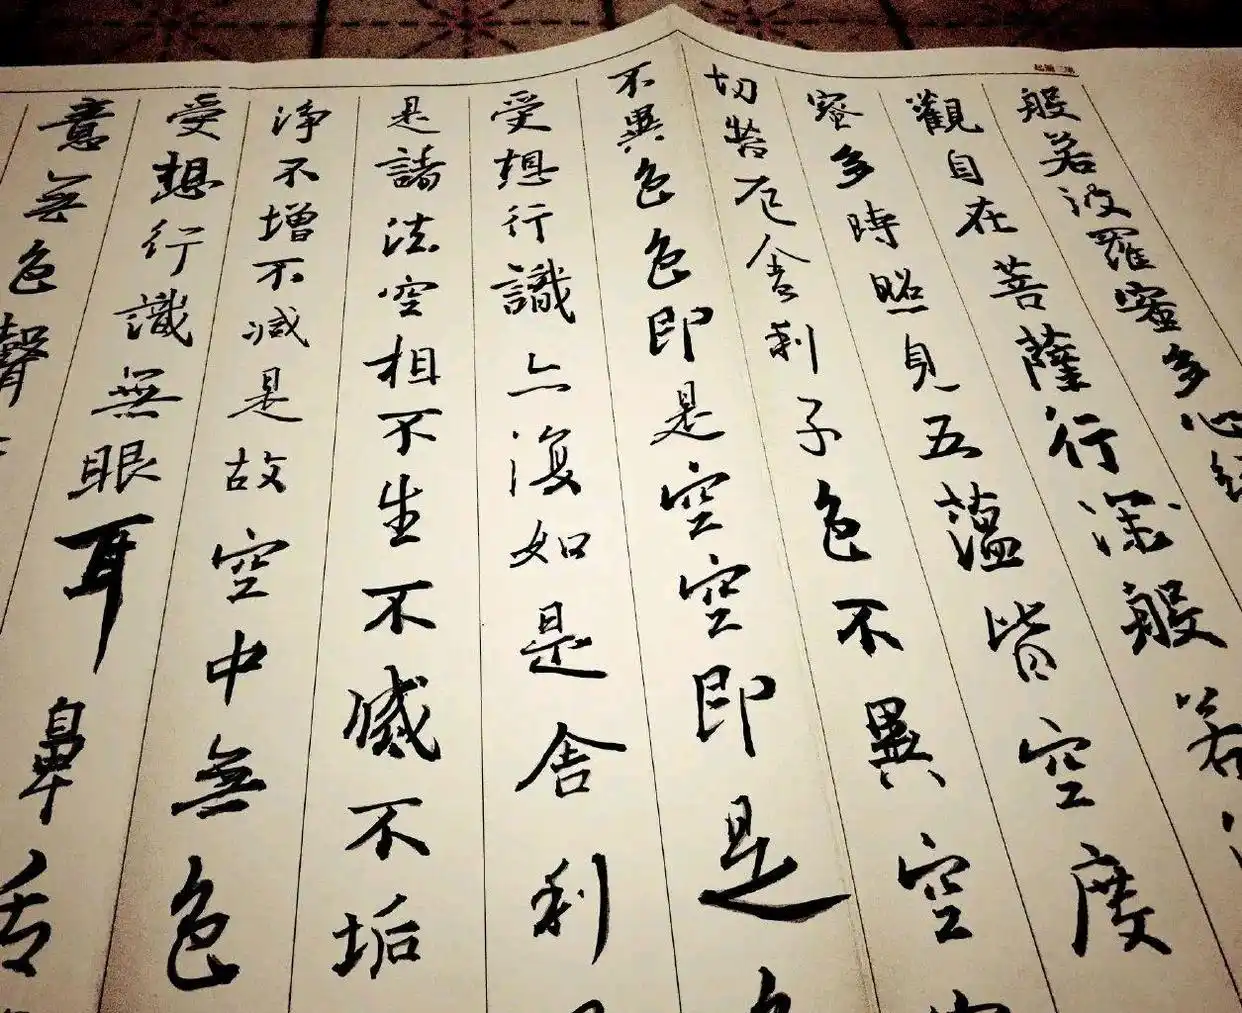 般若波羅蜜多心
觀自在菩薩行深般若
蜜多時照見五蘊皆空度
切苦厄舍利子色不異空
不異色色即是空空即是色
受想行識亦復如是舍利
是諸法空相不生不滅不垢
淨不增不減是故空中無色
受想行識無眼耳鼻舌
意無色聲